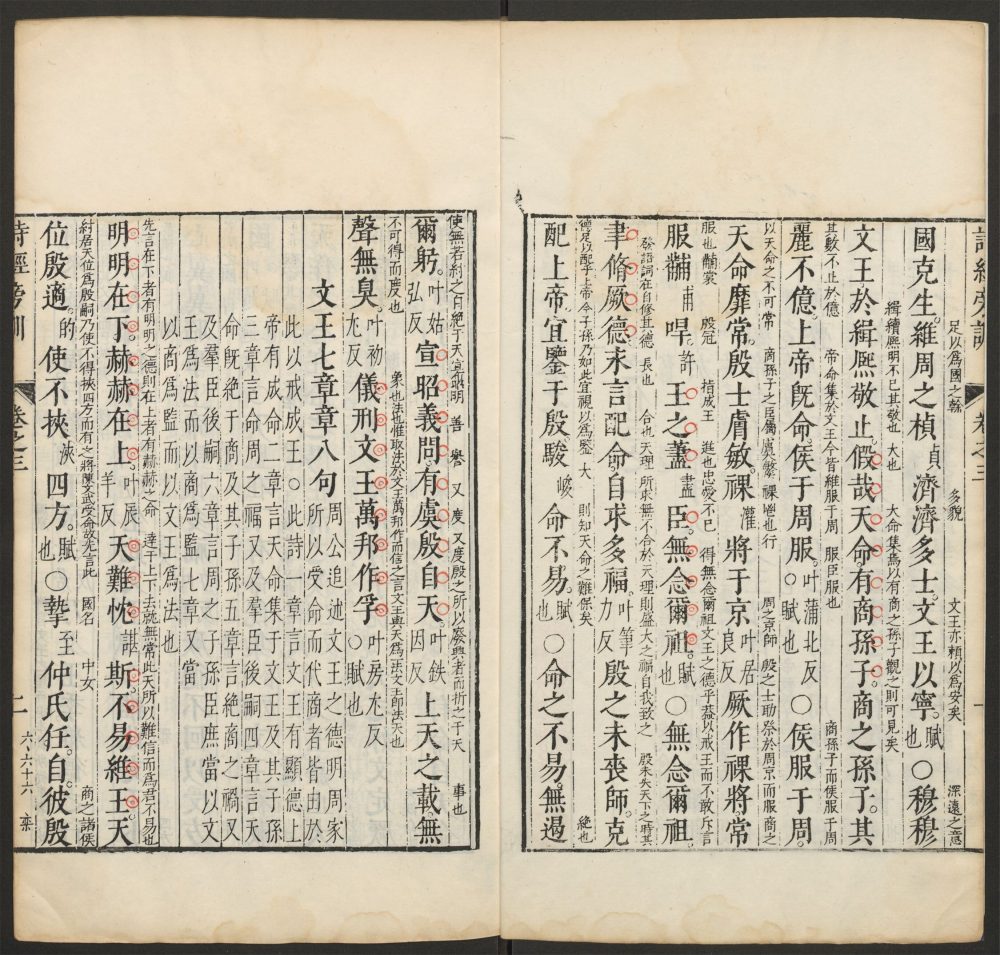 詩經旁訓 卷之三 一
足以爲國之榦 多貌 文王亦賴以爲安矣 深遠之意
國克生。維周之楨貞濟濟多士。文王以寧。賦也○穆穆
緝續熙明不已其敬也 大也 大命集焉以有商之孫子觀之則可見矣
文王於緝熙敬止。假哉天命。有商孫子。商之孫子。其
其數不止於億 帝命集於文王今皆維服于周 服臣服也 商孫子而侯服于周
麗不億。上帝旣命。侯于周服。叶蒲北反○賦也○侯服于周。
以天命之不可常 商孫子之臣屬 周之京師 殷之士助祭於周京而服商之
天命靡常。殷士膚敏。祼灌將于京叶居良反厥作祼將。常
服也黼裳 殷冠 指成王 進也忠愛不已 得無念爾祖文王之德乎蓋以戒王而不敢斥言
服黼甫冔。許王之藎盡臣。無念爾祖。賦也○無念爾祖。
發語詞在自修其德 長也 合也天理 所求無不合於天理則盛大之福自我致之 殷未失天下之時其
聿脩厥德。永言配命。自求多福。叶筆力反殷之未喪師。克
德足以配乎上帝今子孫乃如此宜視以爲鑒 大 則知天命之難保矣 絶也
配上帝。宜鑒于殷。駿峻命不易。賦也○命之不易。無遏
使無若紂之自絶于天宜昭明 善 譽 又 度 又度殷之所以廢興者而折之于天 事也
爾躬。叶姑弘反宣昭義問。有虞殷自天。叶鐵因反上天之載。無
不可得而度也 象也法也惟取法於文王萬邦作而信之言文王與天爲法文王卽法天也
聲無臭。叶初尤反儀刑文王。萬邦作孚。叶房尤反○賦也
文王七章章八句周公追述文王之德明周家所以受命而代商者皆由於
此以戒成王○此詩一章言文王有顯德上
帝有成命二章言天命集于文王及其子孫
三章言命周之福又及羣臣後嗣四章言天
命旣絶于商及其子孫五章言絶商之禍又
及羣臣後嗣六章言周之子孫臣庶當以文
王爲法而以商爲監七章又當
以商爲監而以文王爲法也
先言在下者有明明之德則在上者有赫赫之命 達于上下去就無常此天所以難信而爲君不易也
明明在下。赫赫在上。叶辰羊反天難忱諶斯。不易維王。天
紂居天位爲殷嗣乃使不得挾四方而有之將陳文武受命故先言此 國名 中女 商之諸侯
位殷適。的使不挾浹四方。賦也○摯至仲氏任。自彼殷
詩經旁訓 卷之三 二 六六十六 栾